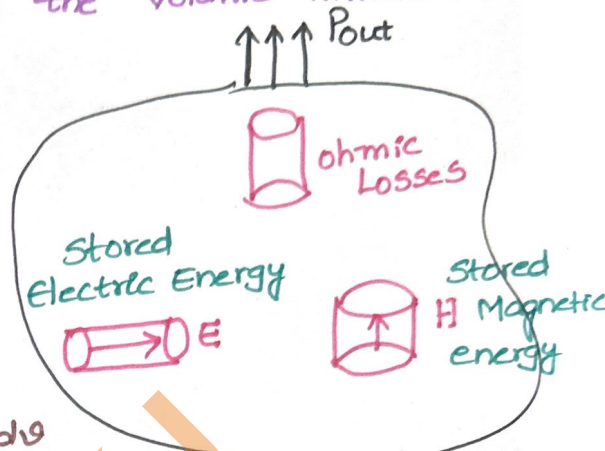 the
Pout
ohmic
Losses
Stored
Electric Energy
E
Stored
H Magnetic
energy